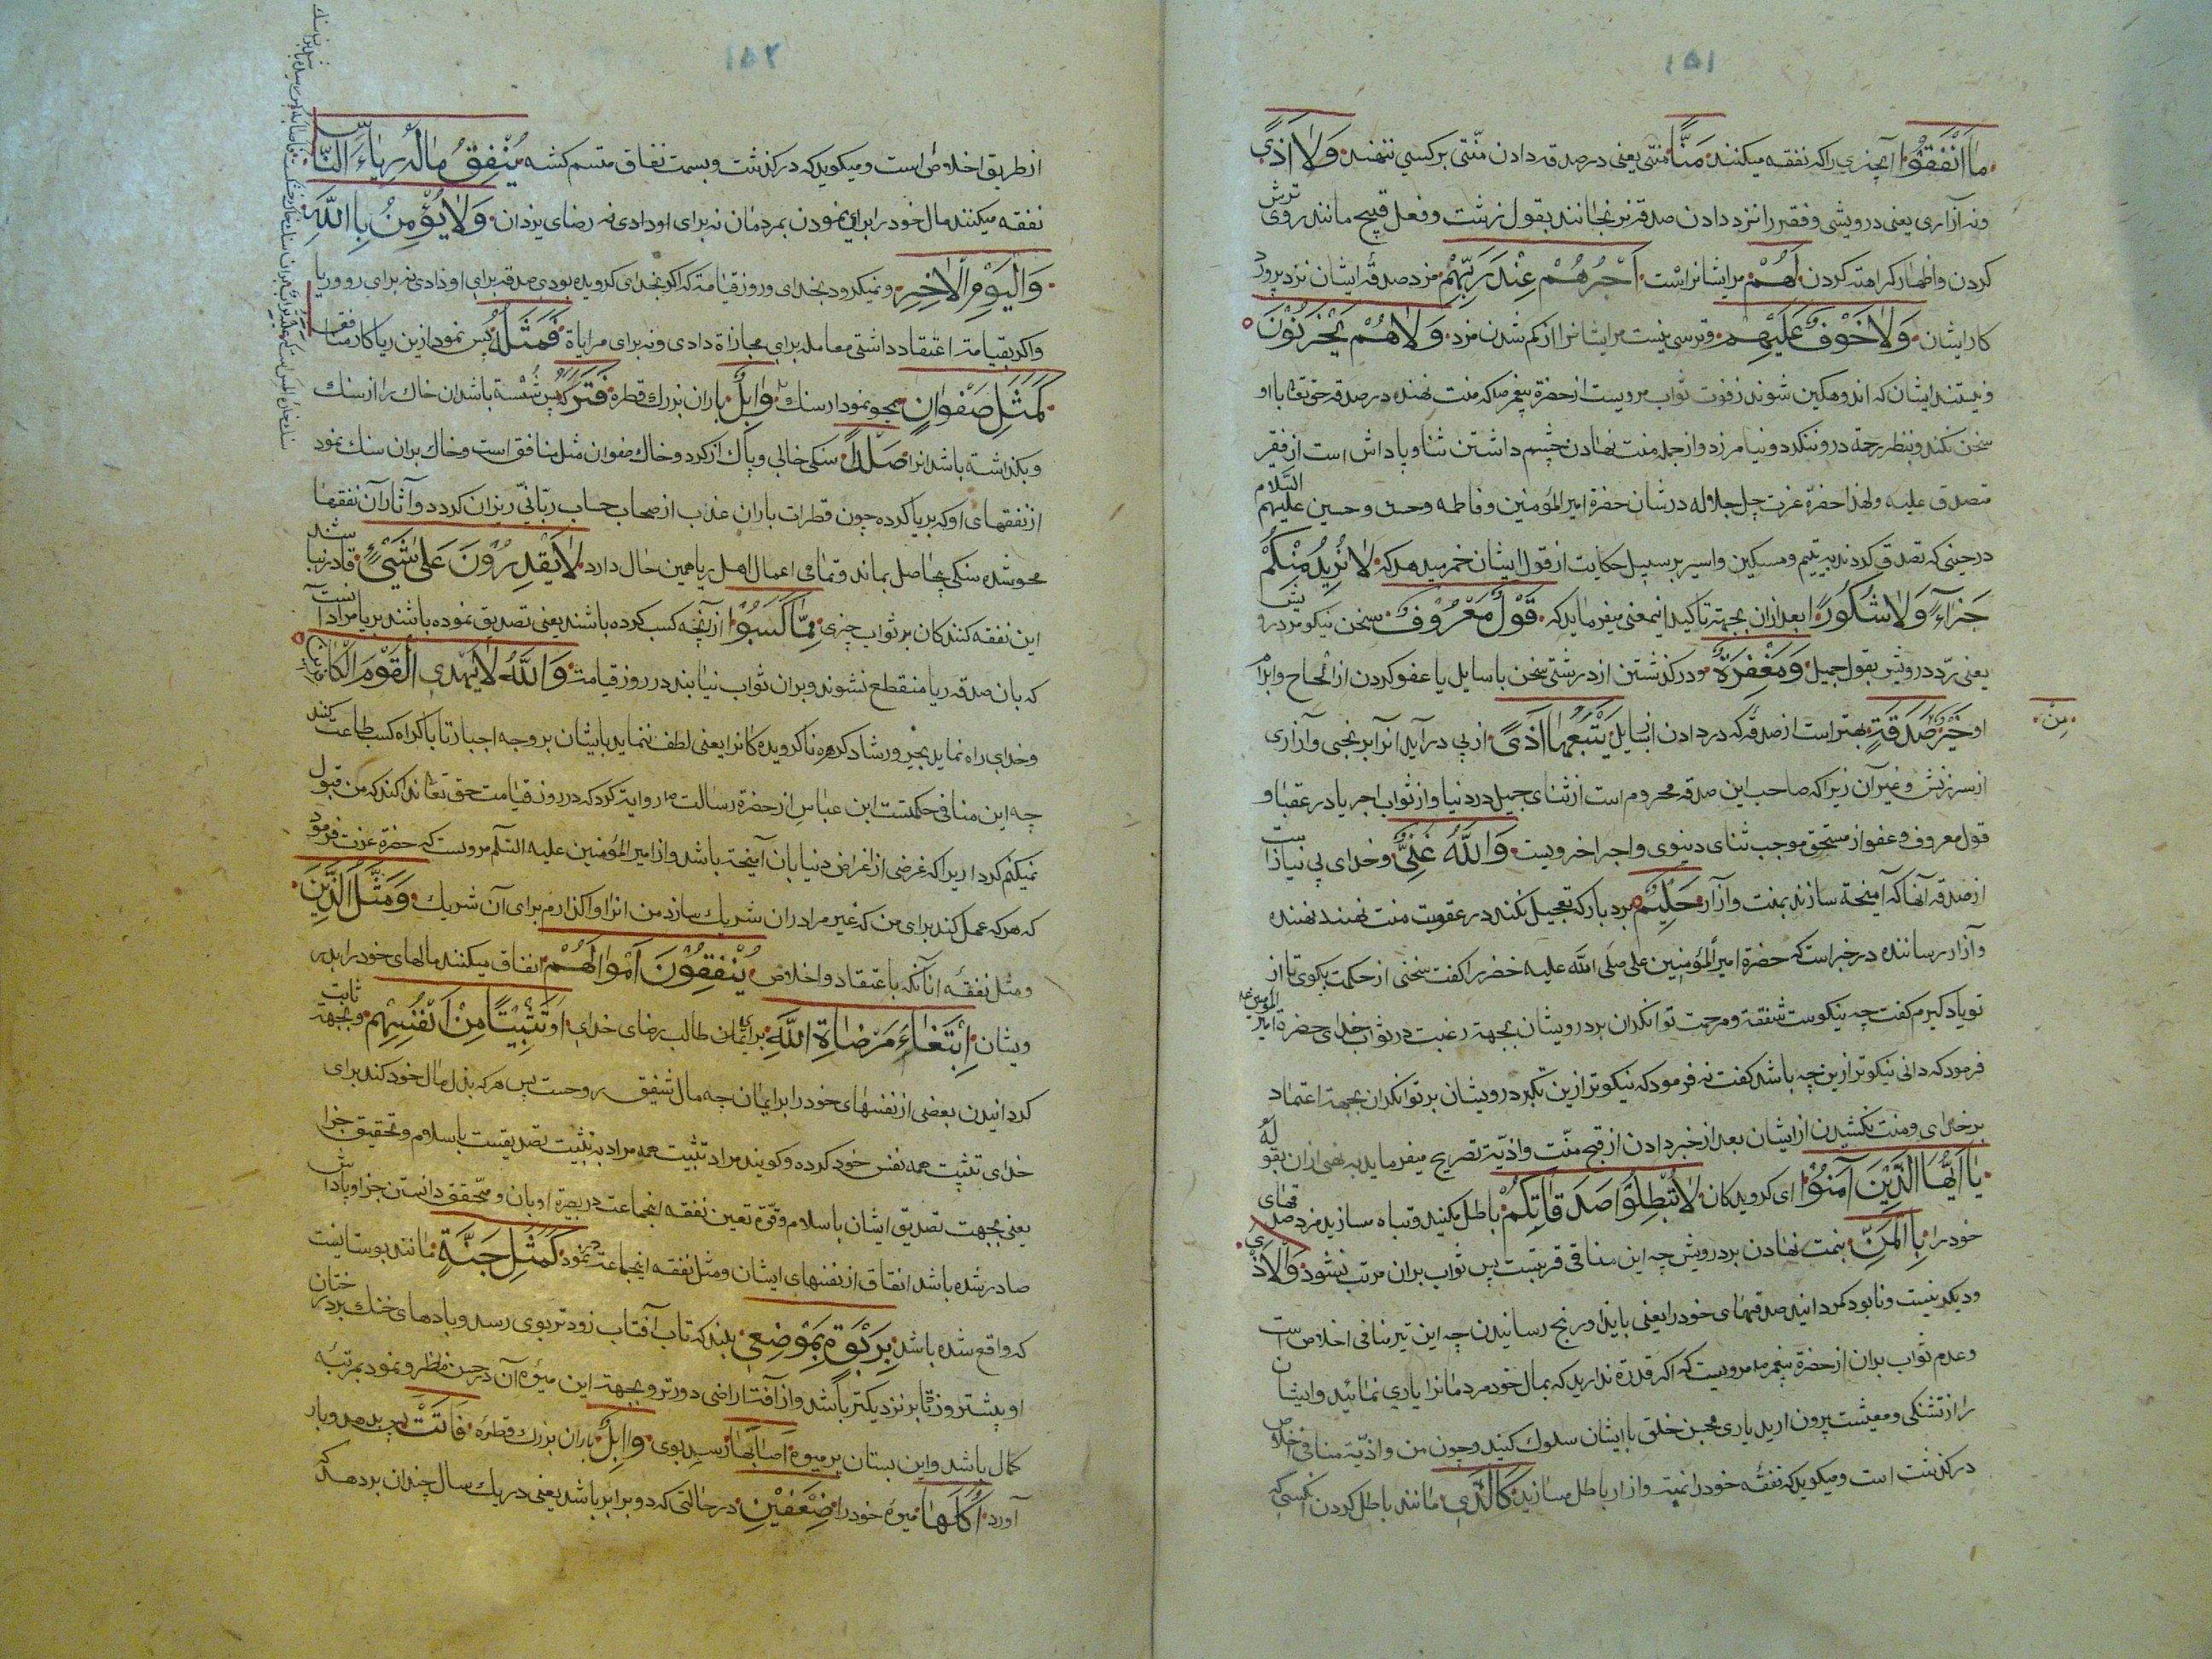 ١٥١
ما انفقوا آنچیزی را که نفقه میکنند منا منتی یعنی در صدقه دادن منتی بر کسی ننهند ولا اذی
ونه آزاری یعنی درویشی وفقیر را نزد دادن صدقه نرنجانند بقول زشت وفعل قبیح مانند روی ترش
کردن واظهار کراهته کردن لهم مر ایشانراست اجرهم عند ربهم مزد صدقه ایشان نزد پرورد
کار ایشان ولا خوف علیهم وترسی نیست مر ایشانرا از کم شدن مزد ولا هم یحزنون
ونیستند ایشان که اندوهکین شوند زفوت ثواب مرویست از حضرة پیغمبر که منت نهنده در صدقه حق تعا با او
سخن نکند وبنظر رحمة درو ننکرد ونیامرزد واز جمله منت نهادن چشم داشتن ثنا وپاداش است از فقیر
متصدق علیه ولهذا حضرة عزت جل جلاله در شان حضرة امیر المؤمنین وفاطمه وحسن وحسین علیهم السلام
در حینی که تصدق کردند بر یتیم ومسکین واسیر بر سبیل حکایت از قول ایشان خبر میدهد که لا نرید منکم
جزآء ولا شکورا بعد از ان بجهة تاکید اینمعنی میفرماید که قول معروف سخن نیکو مر درویش
یعنی رد درویش بقول جمیل ومغفرة ودر کذشتن از درشتی سخن با سایل یا عفو کردن از الحاح وابرام
او خیر صدقة بهتر است از صدقه که در دادن انسایل یتبعها اذی از پی در آید آنرا برنجی وآزاری
من
از سرزنش وغیر آن زیرا که صاحب این صدقه محروم است از ثنای جمیل در دنیا واز ثواب اجر یاد در عقبا و
قول معروف وعفو از مستحق موجب ثنای دنیوی واجر اخرویست والله غنی وخدای بی نیازاست
از صدقه آنها که آمیخته سازند بمنت وآزار حلیم بردبار که تعجیل نکند در عقوبت منت نهند نهنده
وآزار رساننده در خبر است که حضرة امیر المؤمنین علی صلی الله علیه خضر را کفت سخنی از حکمت بکوی تا از
تو یاد کیرم کفت چه نیکوست شفقة ومرحمت توانکران بر درویشان بجهة رغبت در ثواب خدای حضرة امیر المؤمنین
فرمود که دانی نیکوتر ازین چه باشد کفت نه فرمود که نیکوتر ازین تکبر درویشان بر توانکران بجهة اعتماد
بر خدای ومنت نکشیدن از ایشان بعد از خبر دادن از قبح منت واذیة تصریح میفرماید به نهی از ان بقوله
یا ایها الذین آمنوا ای کرویدکان لا تبطلوا صدقاتکم باطل مکنید وتباه مسازید مزد صدقهای
خود را بالمن بمنت نهادن بر درویش چه این منافی قربتست پس ثواب بران مرتب نشود والاذی
ودیکر نیست ونابود مکردانید صدقهای خود را یعنی بایذا ورنج رسانیدن چه این نیز منافی اخلاص است
وعدم ثواب بران از حضرة پیغمبر مرویست که اکر قدرة ندارید که بمال خود مردمانرا یاری نمائید وایشان
را از تشنکی ومعیشت بیرون ارید یاری بحسن خلق با ایشان سلوک کنید وچون من واذیة منافی اخلاص
در کذشت است ومیکوید که نفقه خود را بمنت وازار باطل مسازید کالذی مانند باطل کردن آنکسی که
١٥٢
از طریق اخلاص است ومیکوید که در کذشت وبسمت نفاق متسم کشته ینفق ماله ریاء الناس
نفقه میکنند مال خود را برای نمودن بمردمان نه برای او دادی نه رضای یزدان ولا یؤمن بالله
والیوم الاخر ونمیکرود بخدای وروز قیامة که اکر بخدای کرویده بودی صدقه برای او دادی نه برای رو وریا
واکر بقیامة اعتقاد داشتی معامله برای مجازاة دادی ونه برای مراءاة فمثله پس نمودار ین ریاکار منافق
کمثل صفوان همچو نمودار سنک وابل باران بزرک قطره فترکه پس شسته باشد ان خاک را از سنک
وبکذاشته باشد انرا صلدا سنکی خالی وپاک از کرد وخاک صفوان مثل منافق است وخاک بران سنک نمود
از نفقهای او که بریا کرده چون قطرات باران عذب از صحاب حساب ربانی ریزان کردد وآثار آن نفقها
محو شده سنکی بیحاصل بماند وتمامی اعمال اهل ریا همین حال دارد لا یقدرون علی شیء قادر نباشند
این نفقه کنندکان بر ثواب چیزی مما کسبوا از آنچه کسب کرده باشند یعنی تصدیق نموده باشند بریا مراد آنست
که بان صدقه ریا منقطع نشوند وبران ثواب نیابند در روز قیامة والله لا یهدی القوم الکافرین
وخدای راه ننماید بخیر ورشاد کروه ناکرویده کانرا یعنی لطف ننماید بایشان بر وجه اجبار تا باکراه کسب طاعت کنند
چه این منافی حکمتست ابن عباس از حضرة رسالت روایة کرد که در روز قیامت حق تعا ندا کند که من قبول
نمیکنم کردار یرا که غرضی از اغراض دنیا بان آمیخته باشد واز امیر المؤمنین علیه السلم مرویست که حضرة عزت فرمود
که هر که عمل کند برای من که غیر مرا در ان شریک سازد من انرا واکذارم برای آن شریک ومثل الذین
ومثل نفقه آنانکه با اعتقاد واخلاص ینفقون اموالهم انفاق میکنند مالهای خود را بدر
ویشان ابتغاء مرضاة الله برای طالب رضای خدای او تثبیتا من انفسهم وبجهة ثابت
کردانیدن بعضی از نفسهای خود را بر ایمان چه مال شفیق روحست پس هر که بذل مال خود کند برای
خدای تثبیت همه نفس خود کرده وکویند مراد تثبیت همه مراد به تثبیت تصدیقست باسلام وتحقیق جزا
یعنی بجهت تصدیق ایشان باسلام وقوة تعین نفقه اینجماعت در بصیرة او بان ومحقق دانستن جزا وپاداش
صادر شده باشد انفاق از نفسهای ایشان ومثل نفقه اینجماعت در نمود کمثل جنة مانند بوستانیست
که واقع شده باشد بربوة بموضعی بلند که تاب آفتاب زودتر بوی رسد وبادهای خنک بر درختان
او بیشتر وزد باثر نزدیکتر باشد واز آفت اراضی دورتر وبجهة این میوه آن در حسن منظر ونمود بمرتبه
کمال باشد واین بستان پر میوه اصابها رسید بوی وابل باران بزرک قطره فآتت پس بدهد وبار
آورد اکلها میوه خود را ضعفین در حالتی که دو برابر باشد یعنی در یک سال چندان بر دهد که